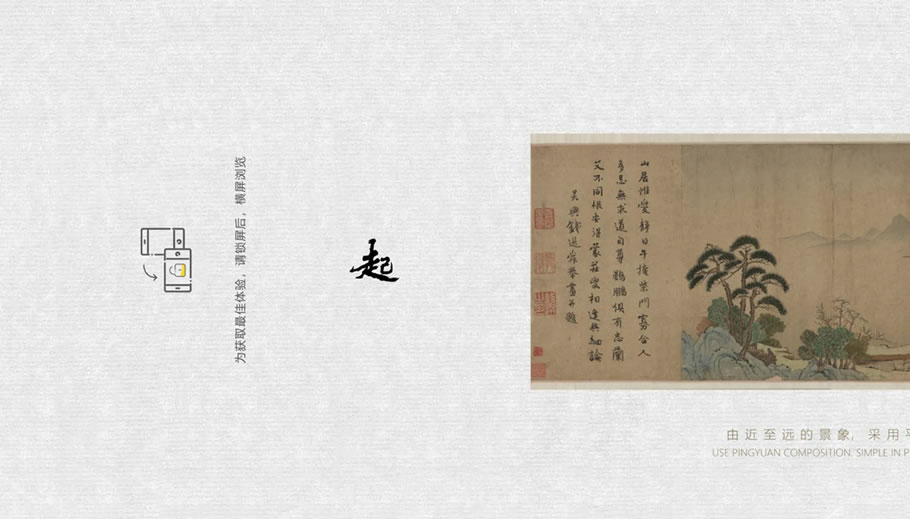 为获取最佳体验，请锁屏后，横屏浏览
起
山居惟愛靜日午掩柴門寡合人
多忌無求道自尊鷃鵬俱有志蘭
艾不同根安得蒙莊叟相逢與細論
吳興錢選舜舉畫并題
由近至远的景象，采用平
USE PINGYUAN COMPOSITION. SIMPLE IN P